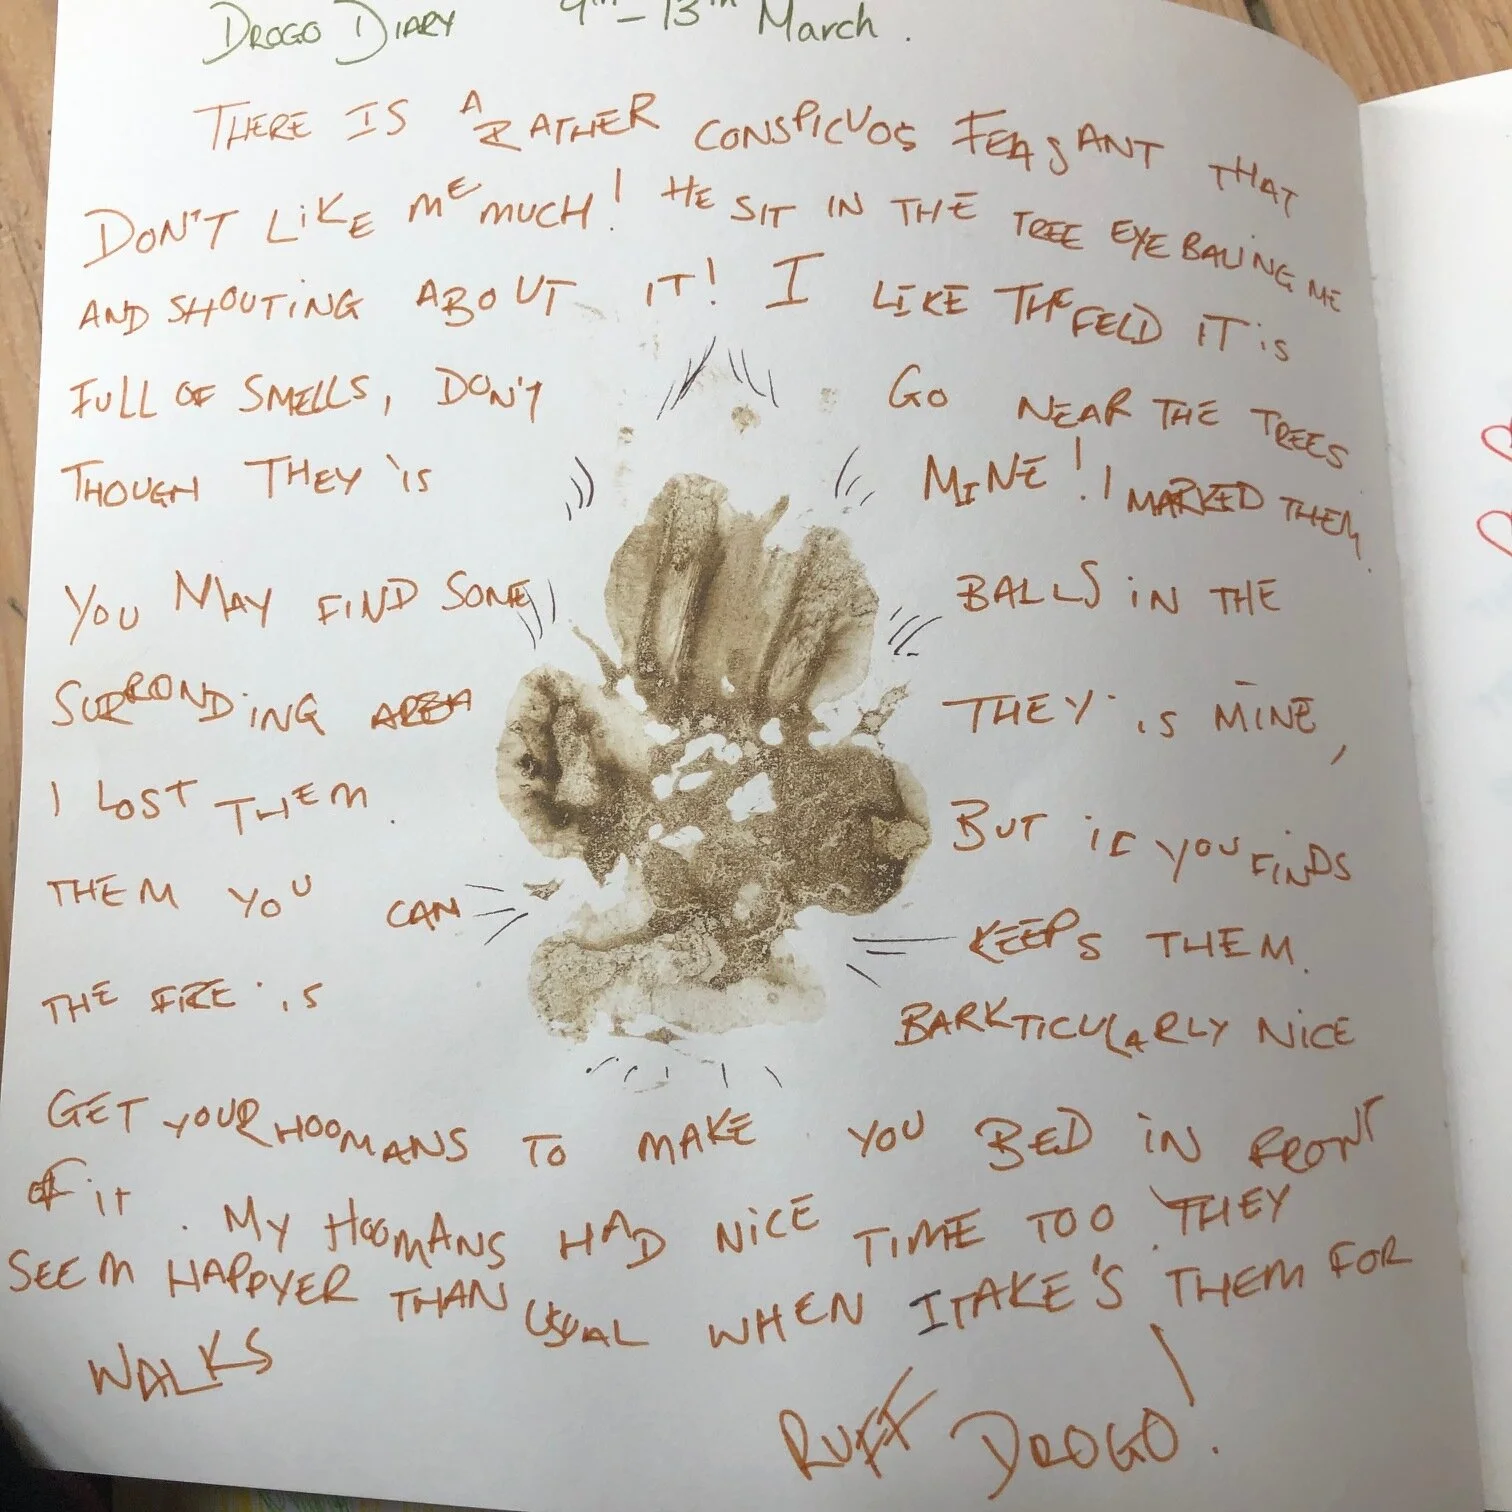 DROGO DIARY 9th - 13th March.
THERE IS A RATHER CONSPICUOS FEASANT THAT
DON'T LIKE ME MUCH! HE SIT IN THE TREE EYE BALLING ME
AND SHOUTING ABOUT IT! I LIKE THE FEILD IT iS
FULL OF SMELLS, DON'T GO NEAR THE TREES
THOUGH THEY 'iS MINE! I MARKED THEM
YOU MAY FIND SOME BALLS iN THE
SURRONDiNG AREA THEY'iS MINE,
I LOST THEM. BUT iF YOU FINDS
THEM YOU CAN KEEPS THEM.
THE FIRE 'iS BARKTICULARLY NICE
GET YOUR HOOMANS TO MAKE YOU BED iN FRONT
OF iT. MY HOOMANS HAD NiCE TIME TOO. THEY
SEEM HAPPYER THAN USUAL WHEN I TAKE'S THEM FOR
WALKS
RUFF DROGO!